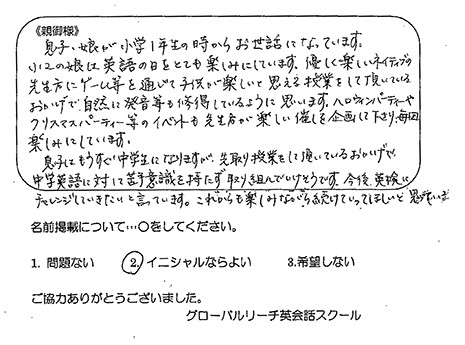 《親御様》
息子、娘が小学1年生の時からお世話になっています。
小2の娘は英語の日をとても楽しみにしています。優しく楽しいネイティブの
先生方にゲーム等を通じて子供が楽しいと思える授業をして頂いている
おかげで、自然に発音等も修得しているように思います。ハロウィンパーティーや
クリスマスパーティー等のイベントも先生方が楽しい催しを企画して下さり、毎回
楽しみにしています。
息子はもうすぐ中学生になりますが、先取り授業をして頂いているおかげで、
中学英語に対して苦手意識を持たず取り組んでいけそうです。今後、英検に
チャレンジしていきたいと言っています。これからも楽しみながら続けていってほしいと思います
名前掲載について…〇をしてください。
1. 問題ない 2. イニシャルならよい 3.希望しない
ご協力ありがとうございました。
グローバルリーチ英会話スクール